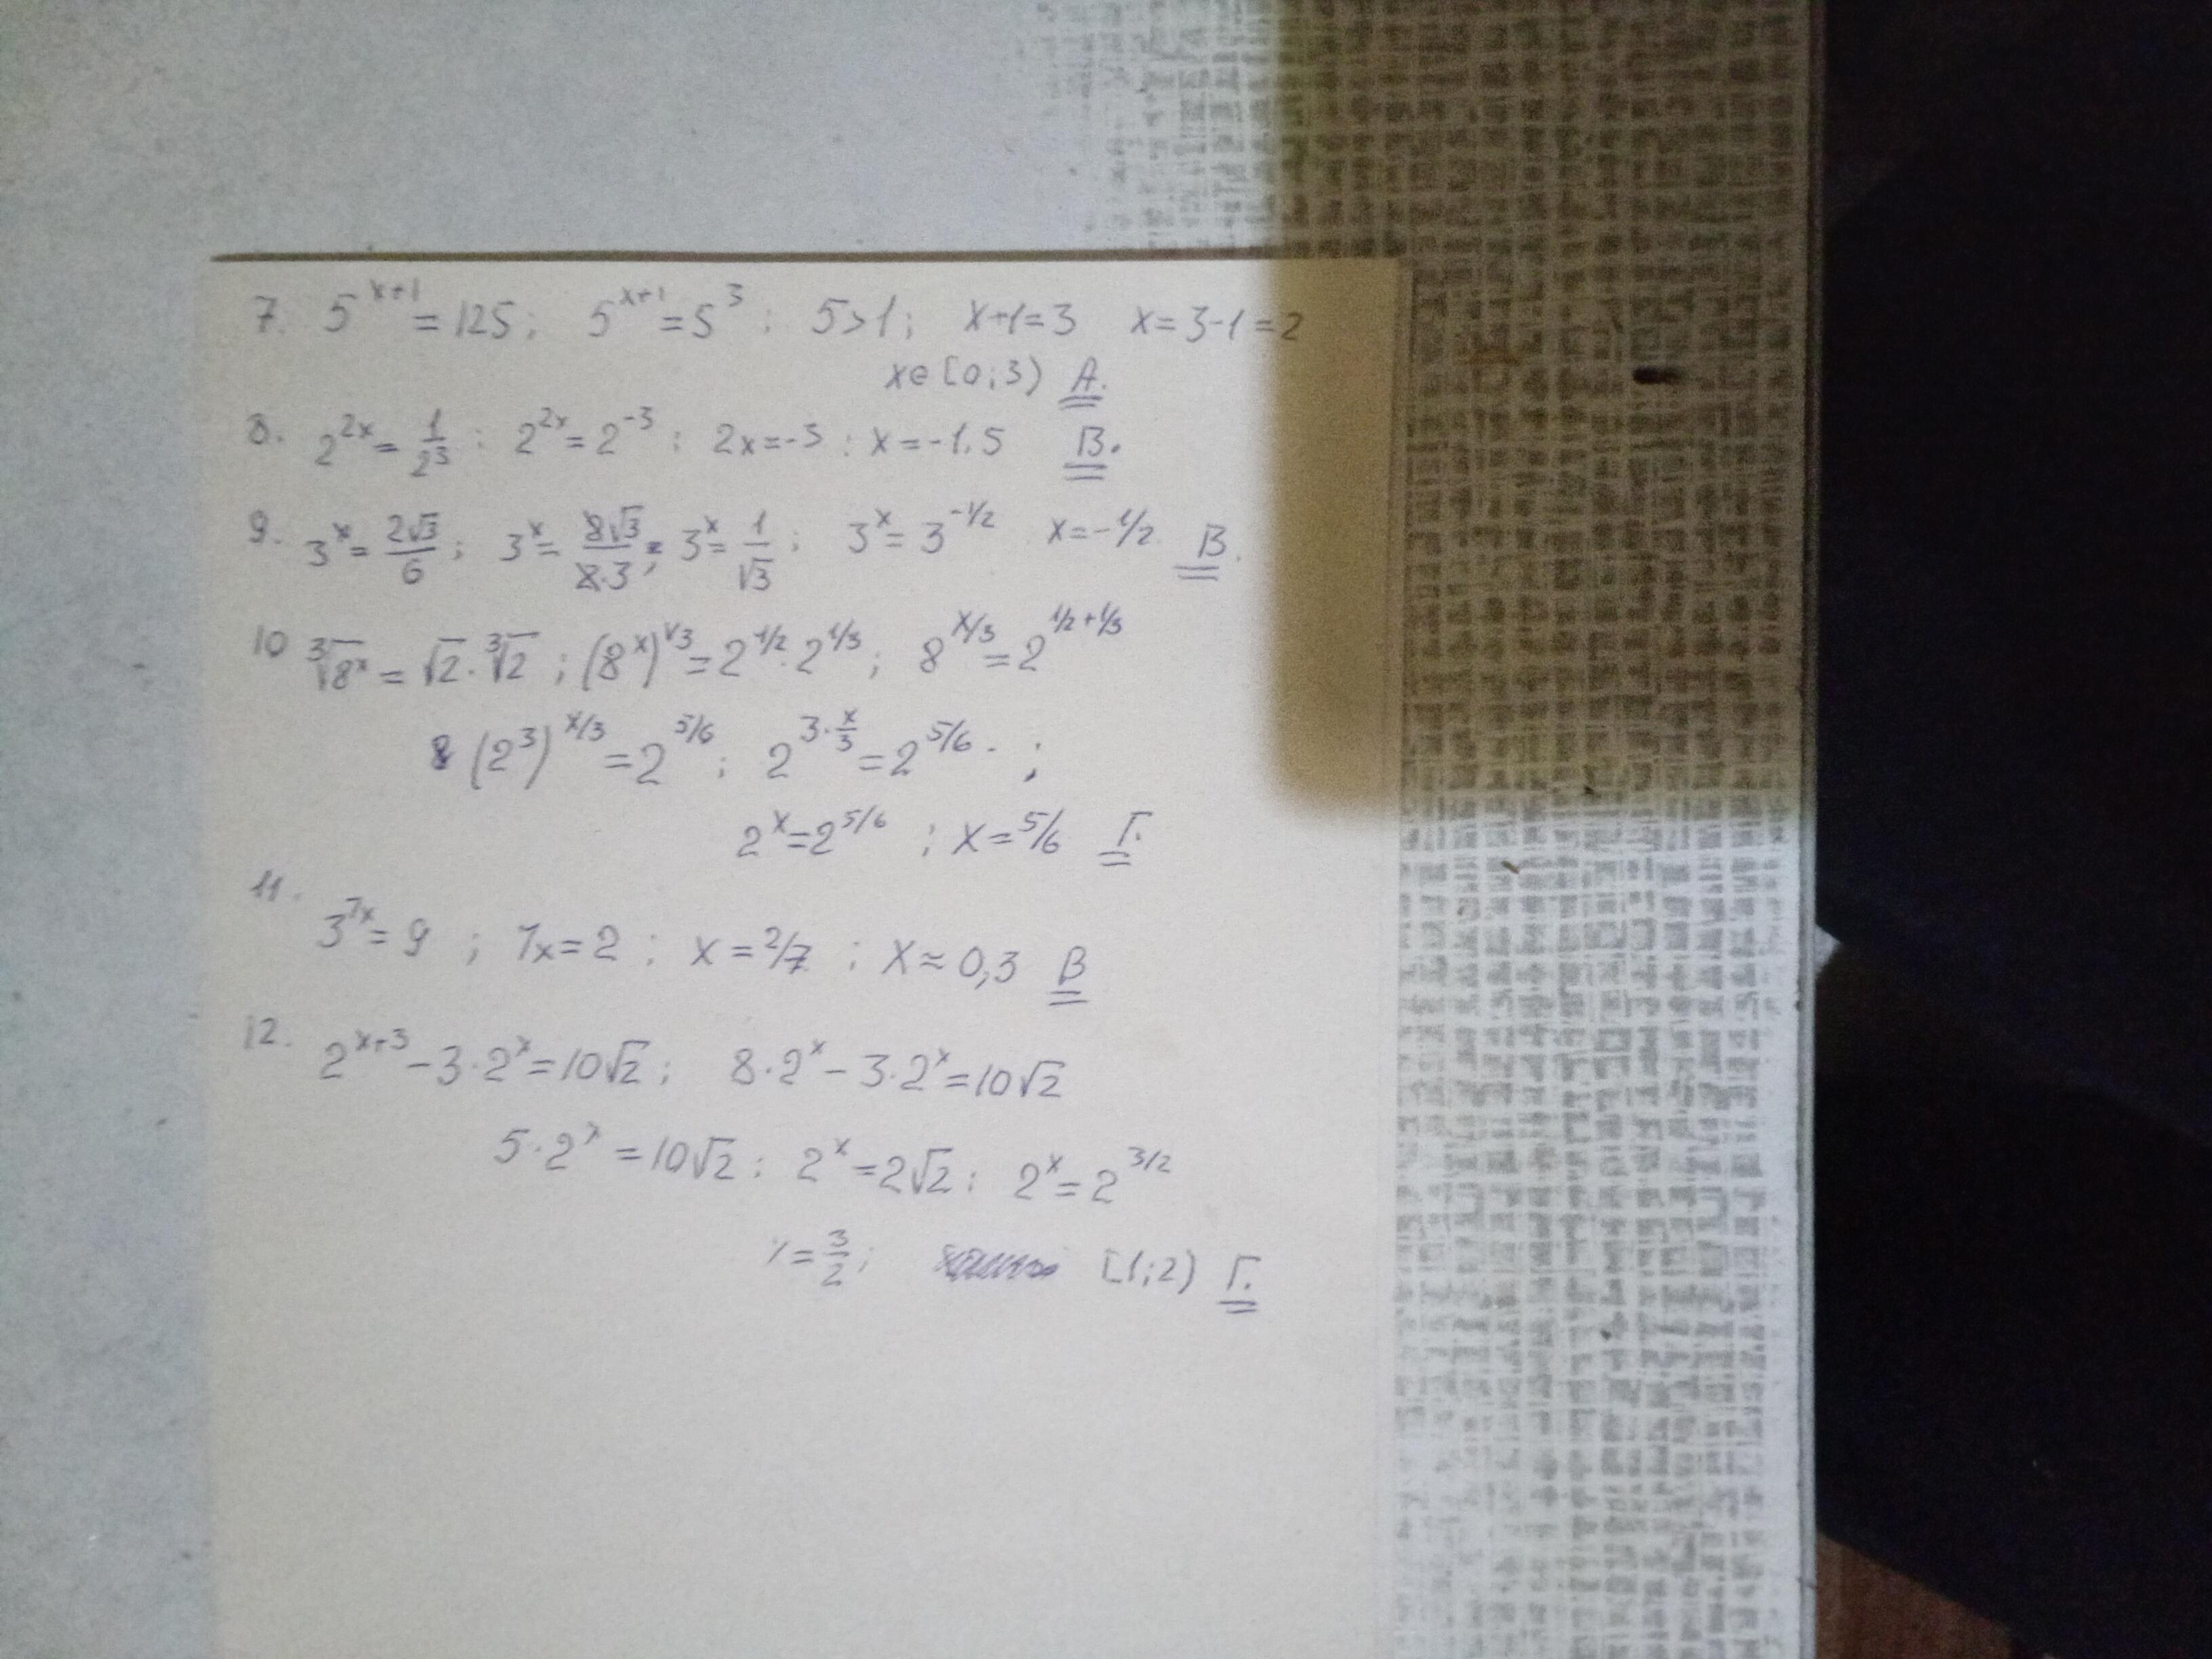 7. 5^(x+1) = 125; 5^(x+1) = 5^3; 5>1; x+1=3 x=3-1=2
x∈[0;3) А.
8. 2^(2x) = 1/2^3; 2^(2x) = 2^(-3); 2x=-3; x=-1.5 В.
9. 3^x = 2√3/6; 3^x = 2√3/2·3; 3^x = 1/√3; 3^x = 3^(-1/2) x=-1/2. В.
10 ∛8^x = √2·∛2; (8^x)^(1/3) = 2^(1/2)·2^(1/3); 8^(x/3) = 2^(1/2+1/3)
(2^3)^(x/3) = 2^(5/6); 2^(3·x/3) = 2^(5/6);
2^x = 2^(5/6); x=5/6 Г.
11. 3^(7x) = 9; 7x=2; x=2/7; x≈0,3 В
12. 2^(x+3) - 3·2^x = 10√2; 8·2^x - 3·2^x = 10√2
5·2^x = 10√2; 2^x = 2√2; 2^x = 2^(3/2)
x = 3/2; [1;2) Г.